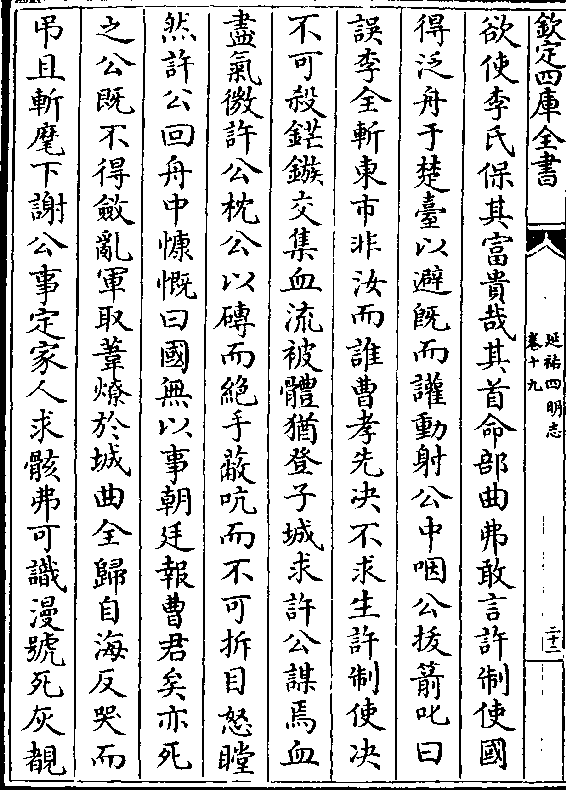 欽定四庫全書
延祐四明志
卷十九
二十二
欲使李氏保其富貴哉其首命部曲弗敢言許制使國
得泛舟于楚臺以避既而讙動射公中咽公拔箭叱曰
誤李全斬東市非汝而誰曹孝先决不求生許制使决
不可殺鋩鏃交集血流被體猶登子城求許公謀焉血
盡氣微許公枕公以磚而絶手蔽吭而不可拆目怒瞠
然許公回舟中慷慨曰國無以事朝廷報曹君矣亦死
之公既不得斂亂軍取葦燎於城曲全歸自海反哭而
弔且斬麾下謝公事定家人求骸弗可識漫號死灰覩